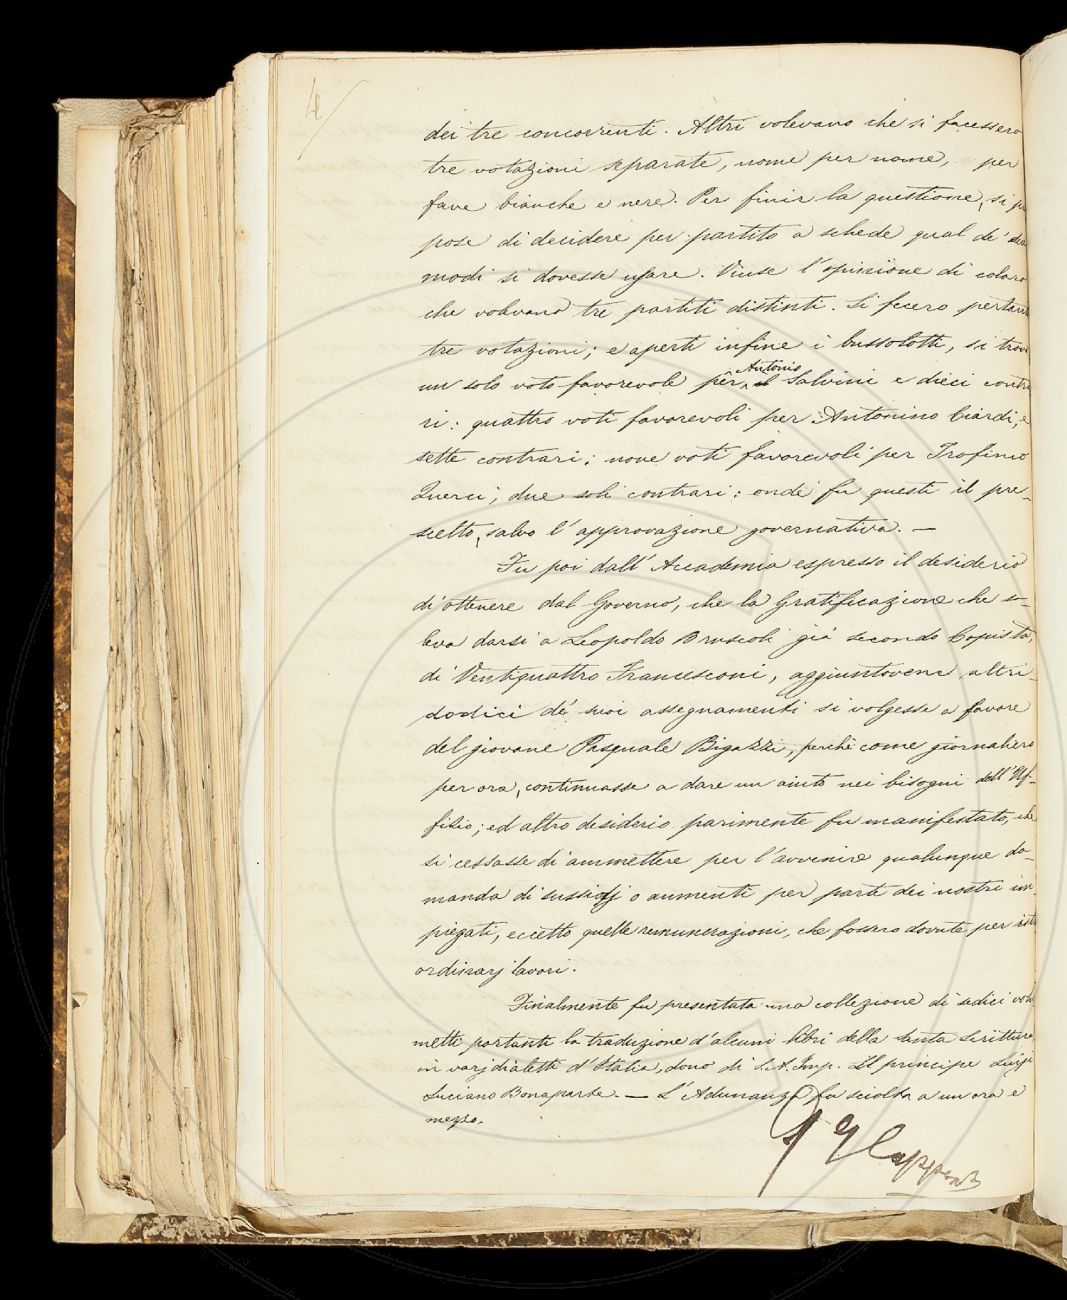 4
dei tre concorrenti. Altri volevano che si facessero
tre votazioni separate, nome per nome, per
fave bianche e nere. Per finir la questione, si pro
pose di decidere per partito a schede qual de' due
modi si dovesse usare. Vinse l'opinione di coloro
che volevano tre partiti distinti. Si fecero pertanto
tre votazioni; e aperti infine i bussolotti, si trovò
Antonio
un solo voto favorevole per Salvini e dieci contra
ri: quattro voti favorevoli per Antonino Ciardi, e
sette contrari; nove voti favorevoli per Trofimo
Querci, due soli contrari: onde fu questi il pre-
scelto, salvo l'approvazione governativa. —
Fu poi dall'Accademia espresso il desiderio
di ottenere dal Governo, che la Gratificazione che so-
leva darsi a Leopoldo Bruscoli già secondo Copista,
di Ventiquattro Francesconi, aggiuntovene altri
dodici de' suoi assegnamenti si volgesse a favore
del giovane Pasquale Bigazzi, perchè come giornaliero
per ora, continuasse a dare un aiuto nei bisogni dell'Uf-
fizio; ed altro desiderio parimente fu manifestato, che
si cessasse di ammettere per l'avvenire qualunque do-
manda di sussidj o aumenti per parte dei nostri im-
piegati, eccetto quelle remunerazioni, che fossero dovute per istra
ordinarj lavori.
Finalmente fu presentata una collezione di sedici volu
metti portanti la traduzione d'alcuni libri della Santa Scrittura,
in varj dialetti d'Italia, dono di S. A. Imp. Il principe Luigi
Luciano Bonaparte. — L'Adunanza fu sciolta a un'ora e
mezzo.
G Capponi